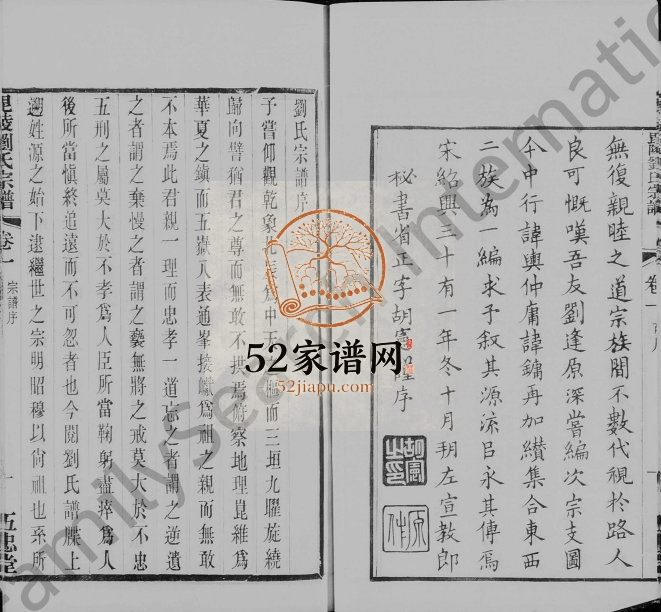 無復親睦之道宗族間不數代視於路人
良可慨嘆吾友劉逢原深嘗編次宗支圖
今中行諱輿仲庸諱鏞再加纘集合東西
二族為一編求予敘其源流吕永其傳焉
宋紹興三十有一年冬十月朔左宣教郎
秘書省正字胡憲謹序
劉氏宗譜序
予嘗仰觀乾象北辰為中天之樞而三垣九曜旋繞
歸向譬猶君之尊而無敢不拱焉俯察地理崑維為
華夏之鎮而五嶽八表通峯接巘為祖之親而無敢
不本焉此君親一理而忠孝一道忘之者謂之逆遺
之者謂之棄慢之者謂之褻無將之戒莫大於不忠
五刑之屬莫大於不孝為人臣所當鞠躬盡瘁為人
後所當慎終追遠而不可忽者也今閱劉氏譜牒上
遡姓源之始下逮繼世之宗明昭穆以尙祖也系所
毘陵劉氏宗譜
卷一
宗譜序
一
五忠堂
卷一
52家谱网
52jiapu.com
FamilySearch International